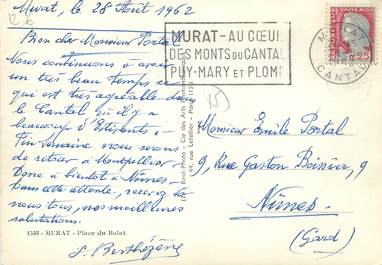 Murat, le 28 Août 1962
12 €
Bien cher Monsieur Portal
Nous continuons à avoir
un très beau temps ce
qui est très agréable dans
le Cantal où il y a
beaucoup d'Estivants.
Fin semaine nous serons
de retour à Montpellier.
Donc à bientôt à Nîmes
Dans cette attente, recevez de
nous tous, nos meilleures
salutations.
S. Berthézène
1548 - MURAT - Place du Balat
MURAT - AU CŒUR
DES MONTS DU CANTAL
PUY-MARY ET PLOMB
MURAT
CANTAL
0,25
Monsieur Emile Portal
9, Rue Gaston Boissier, 9
Nîmes
(Gard)